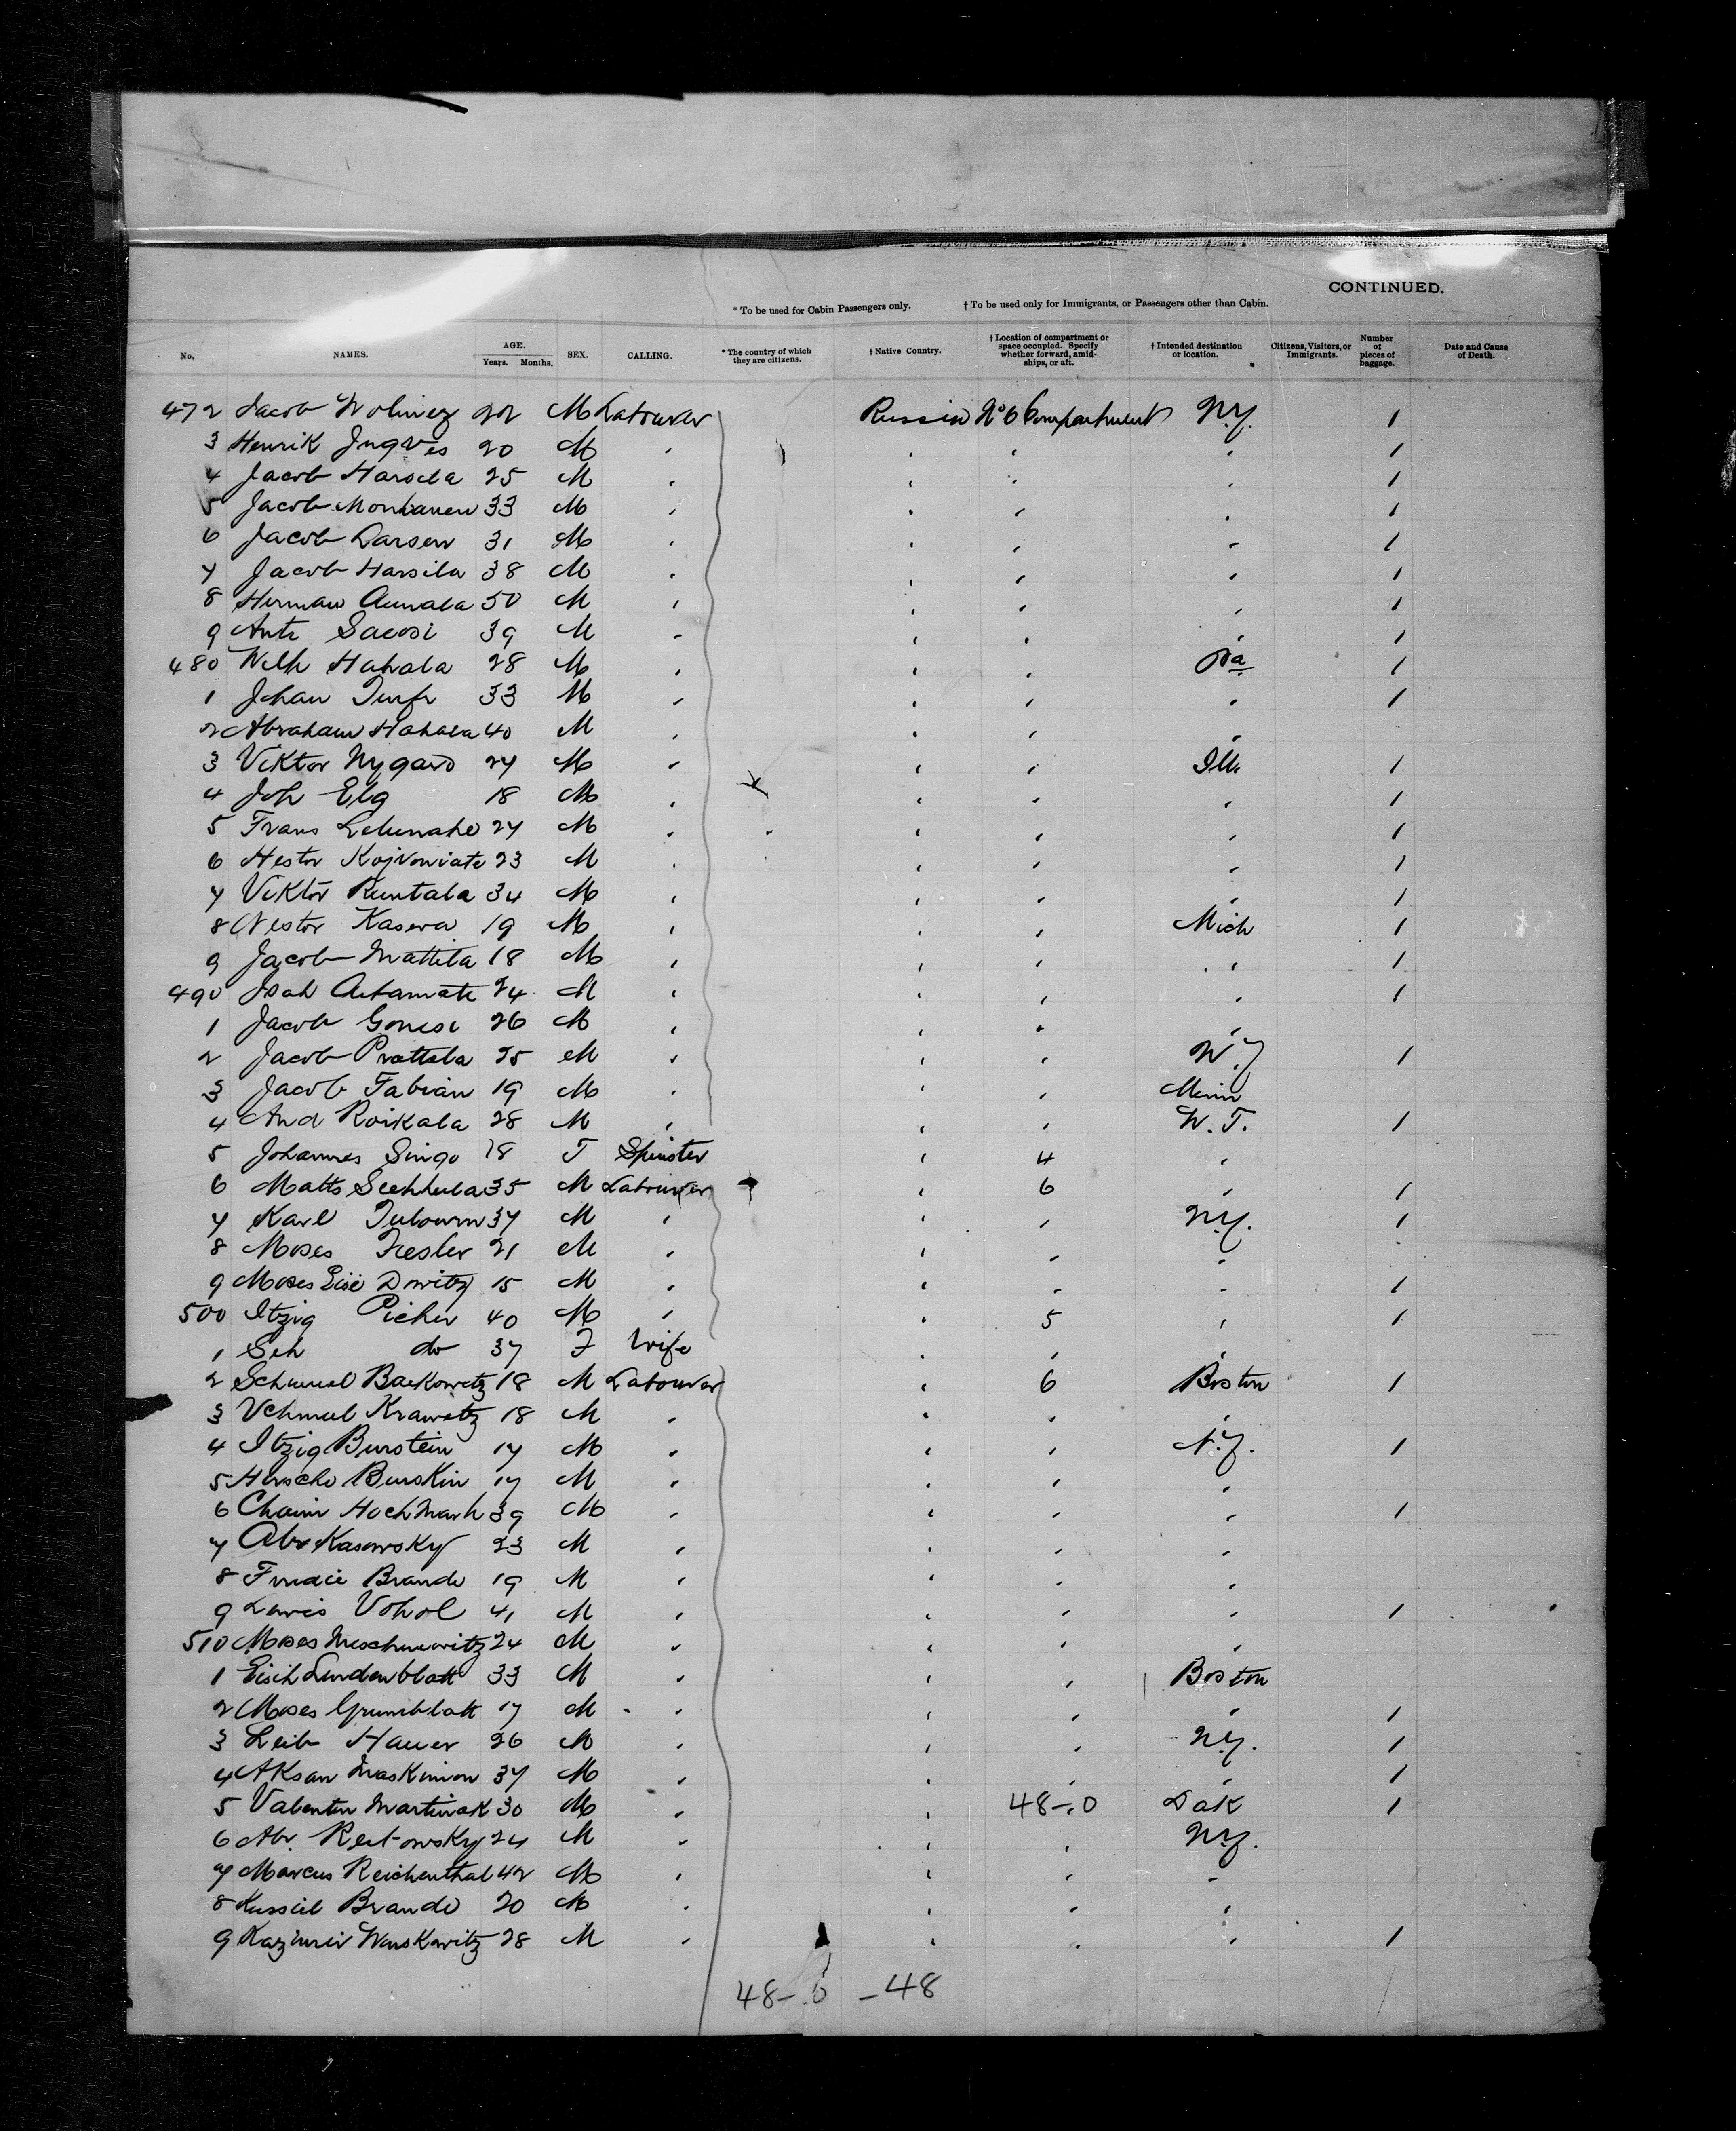 CONTINUED.
* To be used for Cabin Passengers only. † To be used only for Immigrants, or Passengers other than Cabin.
No. NAMES. AGE. Years. Months. SEX. CALLING. * The country of which they are citizens. † Native Country. † Location of compartment or space occupied. Specify whether forward, amidships, or aft. † Intended destination or location. Citizens, Visitors, or Immigrants. Number of pieces of baggage. Date and Cause of Death.
472 Jacob 22 M Labourer Russia No 6 Compartment N.Y. 1
3 Henrik Ingves 20 M 1
4 Jacob Harsila 25 M 1
5 Jacob 33 M 1
6 Jacob Larsen 31 M 1
7 Jacob Harsila 38 M 1
8 Herman 50 M 1
9 Antr 39 M 1
480 Hahala 28 M Pa 1
1 Johan 33 M 1
2 Abraham Hahala 40 M
3 Viktor Nygard 27 M Ill. 1
4 Joh Elg 18 M 1
5 Frans 27 M 1
6 Hestor 23 M 1
7 Viktor Runtala 34 M 1
8 Nestor Kaseva 19 M Mich 1
9 Jacob Mattila 18 M 1
490 Isak 24 M 1
1 Jacob 26 M
2 Jacob Prattala 25 M 1
3 Jacob Fabian 19 M Minn
4 And Roikala 28 M W.T. 1
5 Johannes Singo 18 F Spinster 4
6 Matts 35 M Labourer 6 1
7 Karl 37 M N.Y. 1
8 Moses Fresler 21 M
9 Moses 15 M 1
500 Itzig Picher 40 M 5 1
1 Seh do 37 F Wife
2 Schmuel Backowitz 18 M Labourer 6 Boston 1
3 Krawetz 18 M
4 Itzig Burstein 17 M N.Y. 1
5 Herscho Burskin 17 M
6 Chaim Hochmark 39 M 1
7 Abr Kasowsky 23 M
8 Brande 19 M
9 Lewis 41 M 1
510 Moses 24 M
1 Eisik Lindenblatt 33 M Boston
2 Moses Grunblatt 17 M 1
3 Leib Hauer 26 M N.Y. 1
4 Aksan Maskinion 37 M 1
5 Valentin Martinak 30 M 48-0 Dak 1
6 Abr 24 M N.Y.
7 Marcus Reichenthal 42 M
8 Kussiel Brande 20 M
9 Kazimir Wenskowitz 28 M 1
48-0 -48